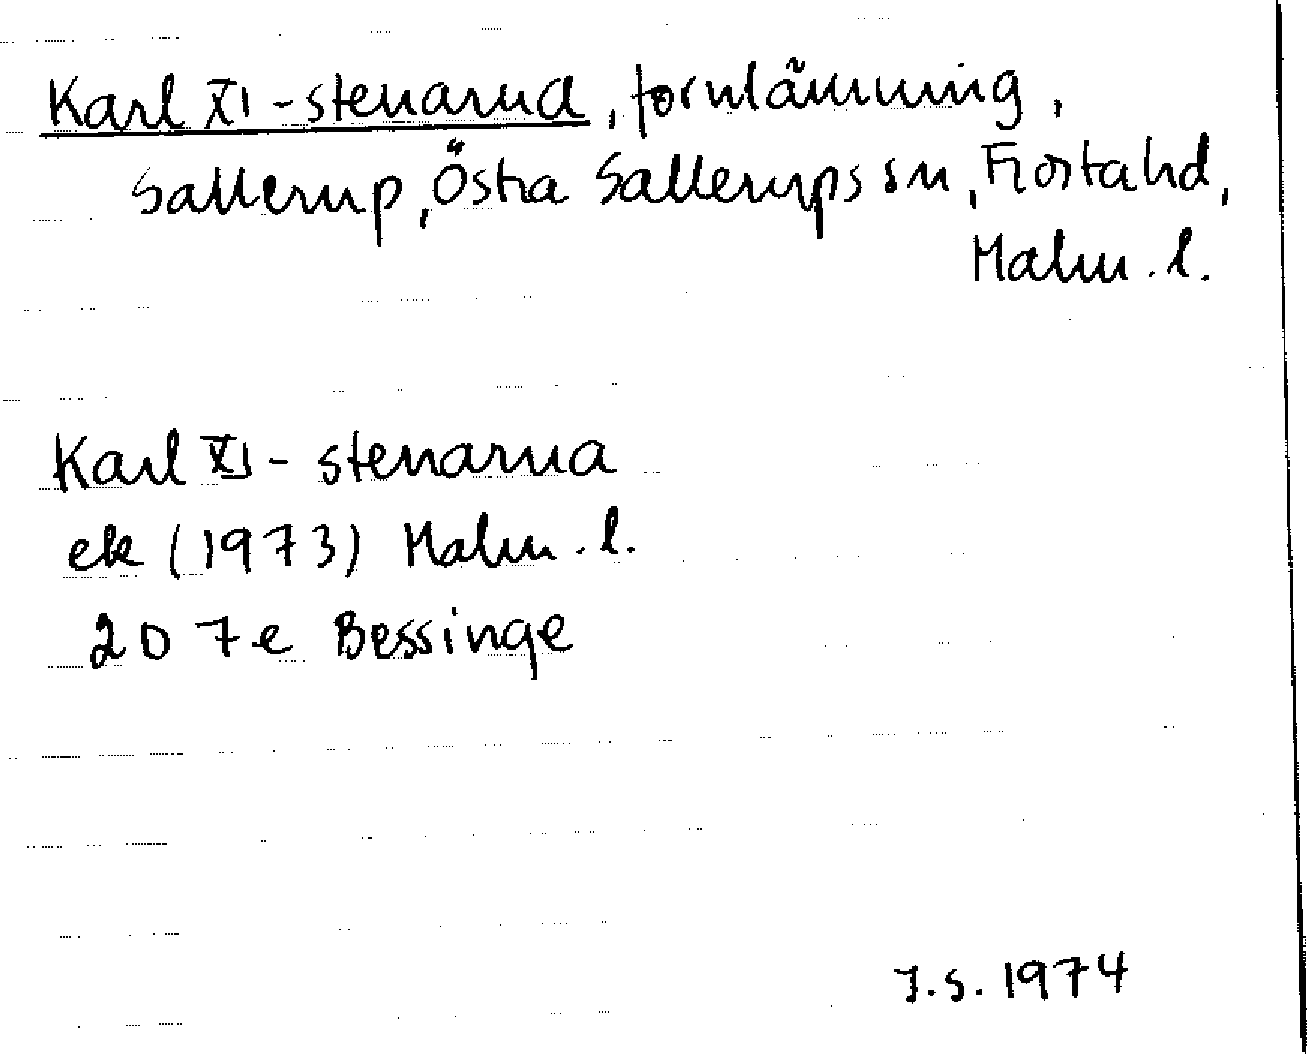 Karl XI-stenarna, fornlämning,
Sallerup, Östra Sallerups sn, Frosta hd,
Malm. l.
Karl XI-stenarna
ek (1973) Malm. l.
20 7e Bessinge
J.S. 1974